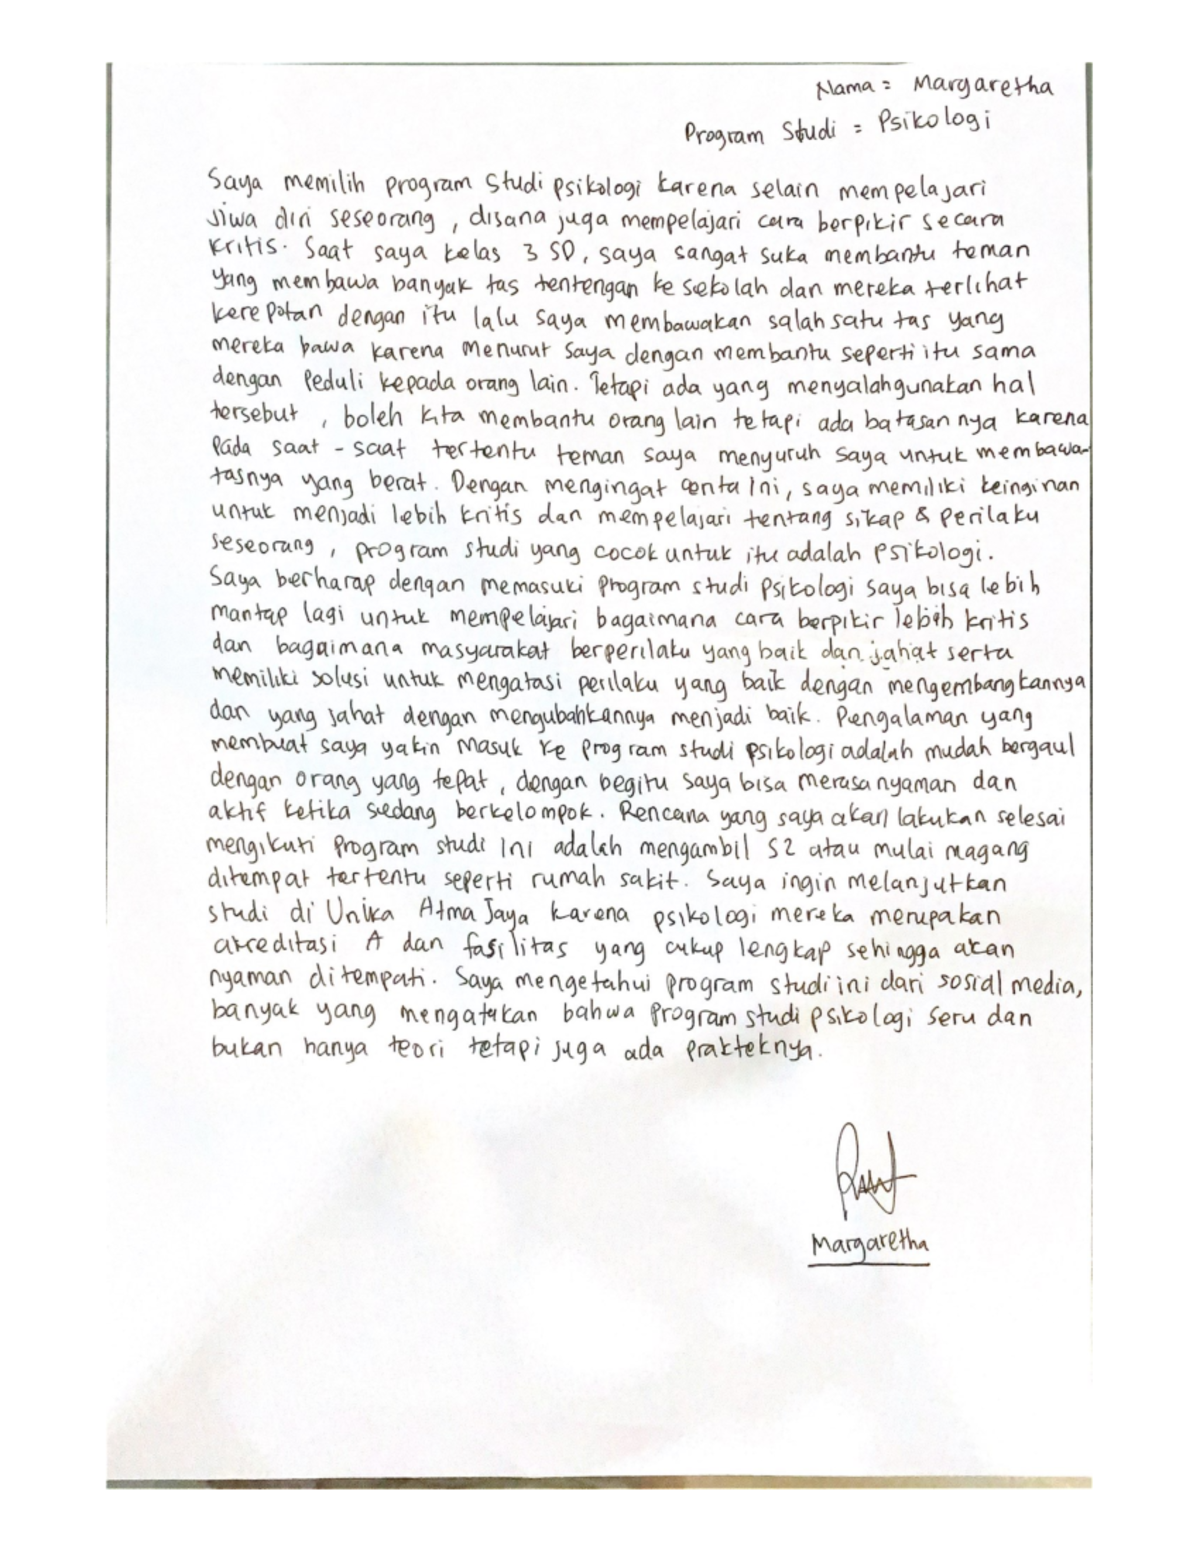 Nama = Margaretha
Program Studi = Psikologi
Saya memilih program studi psikologi karena selain mempelajari
jiwa diri seseorang, disana juga mempelajari cara berpikir secara
kritis. Saat saya kelas 3 SD, saya sangat suka membantu teman
yang membawa banyak tas tentengan ke sekolah dan mereka terlihat
kerepotan dengan itu lalu saya membawakan salah satu tas yang
mereka bawa karena menurut saya dengan membantu seperti itu sama
dengan peduli kepada orang lain. Tetapi ada yang menyalahgunakan hal
tersebut, boleh kita membantu orang lain tetapi ada batasannya karena
pada saat-saat tertentu teman saya menyuruh saya untuk membawa
tasnya yang berat. Dengan mengingat cerita ini, saya memiliki keinginan
untuk menjadi lebih kritis dan mempelajari tentang sikap & perilaku
seseorang, program studi yang cocok untuk itu adalah psikologi.
Saya berharap dengan memasuki program studi psikologi saya bisa lebih
mantap lagi untuk mempelajari bagaimana cara berpikir lebih kritis
dan bagaimana masyarakat berperilaku yang baik dan jahat serta
memiliki solusi untuk mengatasi perilaku yang baik dengan mengembangkannya
dan yang jahat dengan mengubahkannya menjadi baik. Pengalaman yang
membuat saya yakin masuk ke program studi psikologi adalah mudah bergaul
dengan orang yang tepat, dengan begitu saya bisa merasa nyaman dan
aktif ketika sedang berkelompok. Rencana yang saya akan lakukan selesai
mengikuti program studi ini adalah mengambil S2 atau mulai magang
ditempat tertentu seperti rumah sakit. Saya ingin melanjutkan
studi di Unika Atma Jaya karena psikologi mereka merupakan
akreditasi A dan fasilitas yang cukup lengkap sehingga akan
nyaman ditempati. Saya mengetahui program studi ini dari sosial media,
banyak yang mengatakan bahwa program studi psikologi seru dan
bukan hanya teori tetapi juga ada prakteknya.
Margaretha